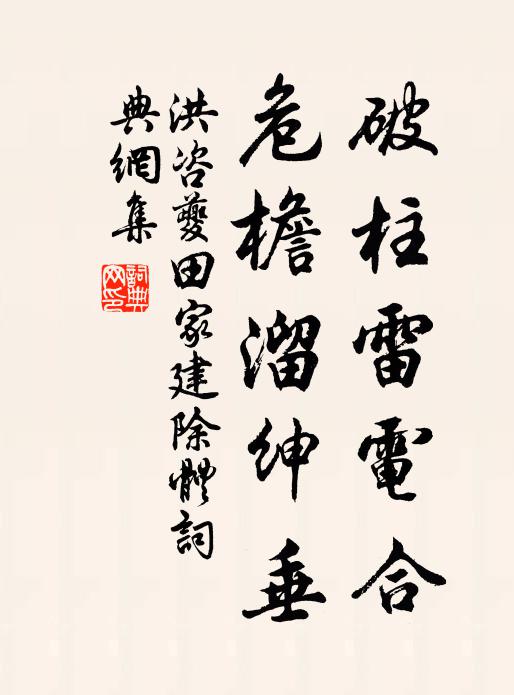 破柱雷電合
危檐溜紳垂
洪咨夔田家建除體詞
典網集
詞典網印